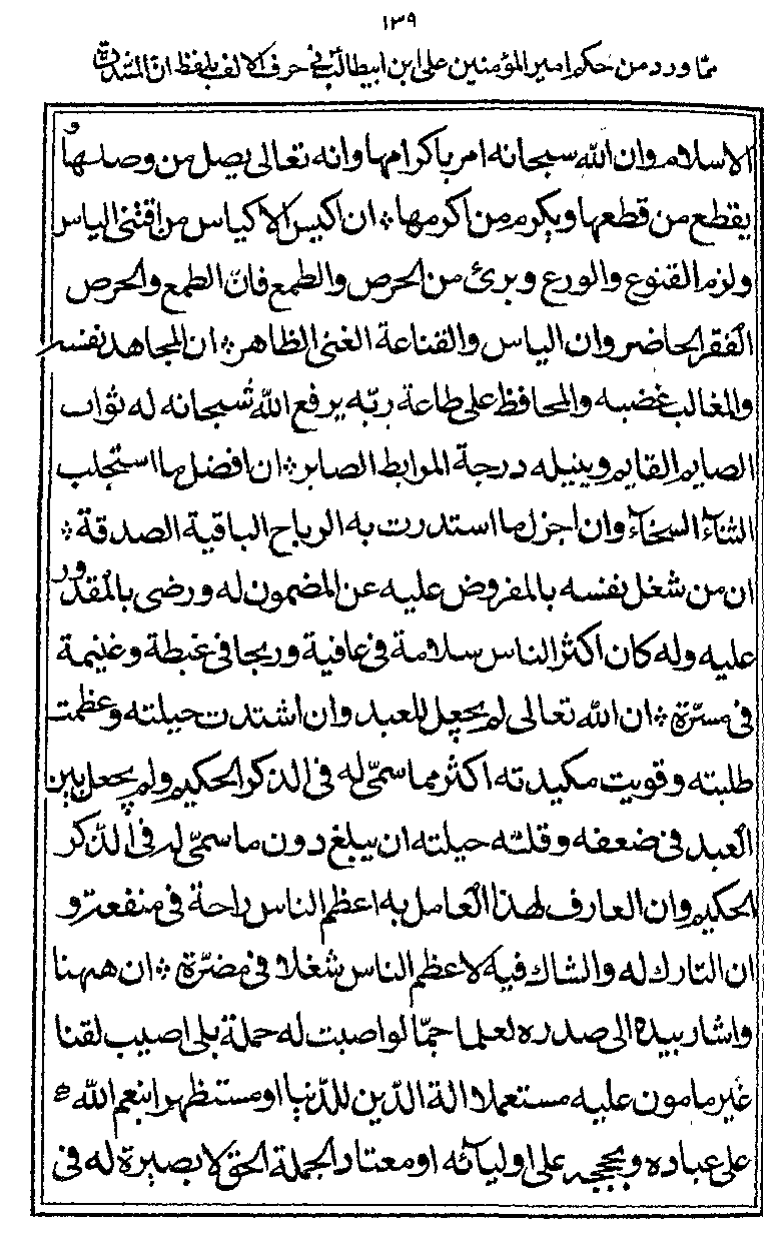 ١٣٩
مما ورد من حكم امير المؤمنين على ابن ابيطالب في حرف الالف بلفظ انّ المشددة
الاسلام وان اللّه سبحانه امر باكرامها وانه تعالى يصل من وصلها و
يقطع من قطعها ويكرم من اكرمها ❊ ان اكيس الاكياس من اقتنى الياس
ولزم القنوع والورع وبرئ من الحرص والطمع فانّ الطمع والحرص
الفقر الحاضر وان الياس والقناعة الغنى الظاهر ❊ ان المجاهد نفسه
والمغالب غضبه والمحافظ على طاعة ربّه يرفع اللّه سُبحانه له ثواب
الصايم القايم وينيله درجة المرابط الصابر ❊ ان افضل ما استجلب
الثناءُ السخاءُ وان اجزل ما استدرت به الرباح الباقية الصدقة ❊
ان من شغل نفسه بالمفروض عليه عن المضمون له ورضى بالمقدور
عليه وله كان اكثر الناس سلامة في عافية وربحا في غبطة وغنيمة
في مسرّة ❊ ان اللّه تعالى لم يجعل للعبد وان اشتدت حيلته وعظمت
طلبته وقويت مكيدته اكثر مما سمّى له في الذكر الحكيم ولم يجعل بين
العبد في ضعفه وقلته حيلته ان يبلغ دون ما سمّى له في الذّكر
الحكيم وان العارف لهذا العامل به اعظم الناس راحة في منفعة و
ان التارك له والشاك فيه لاعظم الناس شغلا في مضرّة ❊ ان ههنا
واشار بيده الى صدره لعلما جمّا لو اصبت له حملة بلى اصيب لقنا
غير مامون عليه مستعملا الة الدّين للدّنيا او مستظهرا بنعم اللّه
على عباده وبحججه على اوليائه او معتاد الجملة الحق لا بصيرة له في